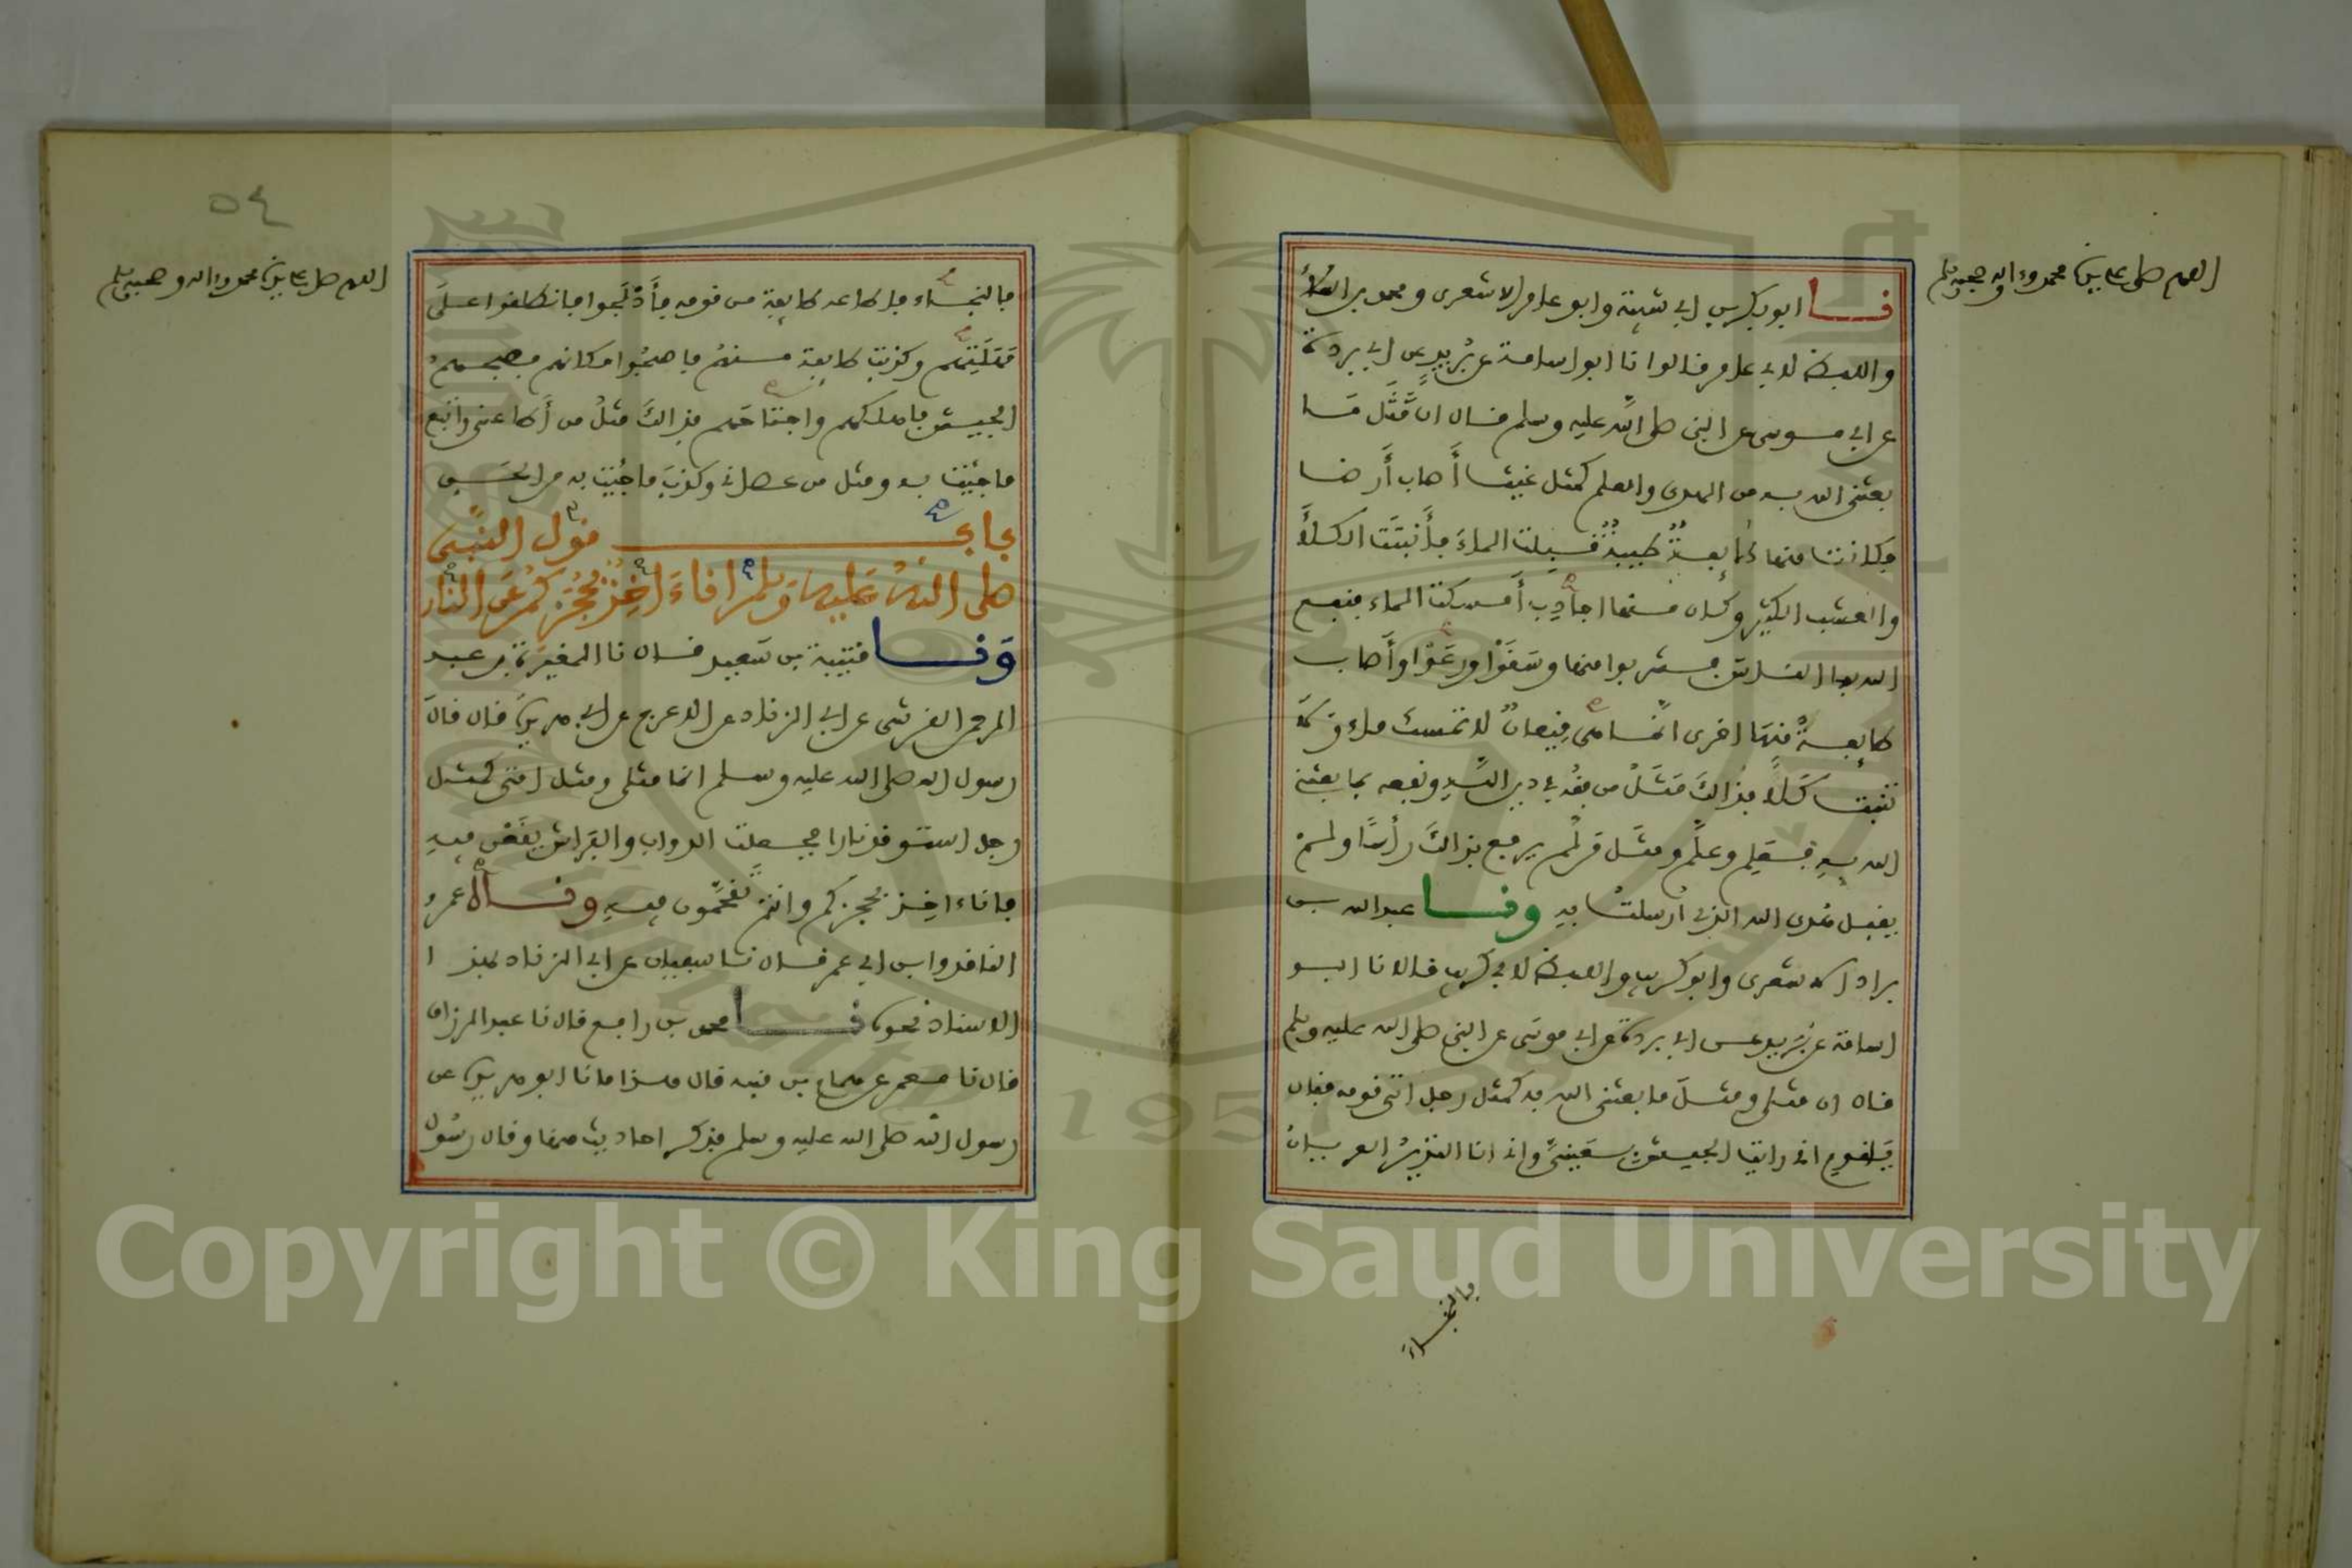 اللهم صل على سيدنا محمد وءاله وصحبه وسلم
نا ابو بكر بن ابي شيبة وابو عامر الاشعري ومحمد بن العلاء
واللفظ لابي عامر قالوا نا ابو اسامة عن بريد عن ابي بردة
عن ابي موسى عن النبي صلى الله عليه وسلم قال ان مَّثَل مَا
بعثني الله به من الهدى والعلم كمثل غيث أَصاب أَرضا
فكانت منها طايفةٌ طيبةٌ قبلت الماءَ فأَنبتَت الكلأَ
والعشب الكثير وكان منها اجادِبُ أَمسكت الماء فنفع
الله بها الناس فشربوا منها وسَقَوْا ورعَوْا وأَصاب
طايفةً مِنهَا اخرى انما هي قِيعانٌ لا تمسك ماء ولا
تنبت كَلًأ فذالكَ مَثَلُ من فقُه في دين اللهِ ونفعه بما بعثني
الله بهِ فعَلِم وعلَّم ومثَل من لَّم يرفع بذالكَ رأسًا ولمْ
يقبل هُدى الله الذي أُرسلتُ به ونا عبد الله بن
براد الاشعري وابو كريب واللفظ لابي كريب قالا نا ابو
اسامة عن بريد عن ابي بردة عن ابي موسى عن النبي صلى الله عليه وسلم
قال ان مثلي ومثلَ ما بعثني الله به كمثل رجل اتى قومه فقال
يَا قومِ اني رايت الجيش بعَينيَّ واني انا النذيرُ العريانُ
فالنجاءَ
٥٤
اللهم صل على سيدنا محمد وءاله وصحبه وسلم
فالنجاء فاطاعه طايفة من قومه فأَدْلَجوا فانطلقوا علَى
مَهْلَتِهم وكذبت طايفة منهمُ فاصبحُوا مكانهم فصبحهمُ
الجيش فاهلكهم واجتاحَهم فذالكَ مثلُ من أَطاعني واتبع
ما جئت به ومثل من عصاني وكذبَ ما جئت به من الحَق
باب قول النَّبي
صلى اللهُ عَليه وسلم انا ءَاخِذٌ بحُجَزِكُم عَن النار
وَنا قتيبة بن سَعيد قال نا المغيرة بن عبد
الرحمن القرشي عن ابي الزناد عن الاعرج عن ابي هريرة قال قالَ
رسول الله صلى الله عليه وسلم انما مثلي ومثل امتي كمثل
رجل استوقد نارا فجعلت الدواب والفراش يقَعْن فيهِ
فانا ءاخِذ بحجزكم وانتم تَقَحَّمون فيهِ ونـاه عمرُو
الناقد وابن ابي عمر قال نا سفيان عن ابي الزناد بهذا
الاسناد نحوه نا محمد بن رافع قال نا عبد الرزاق
قال نا معمر عن همام بن منبه قال هذا ما نا ابو هريرة عن
رسول الله صلى الله عليه وسلم فذكر احاديث منها وقال رسُول
Copyright © King Saud University
1957